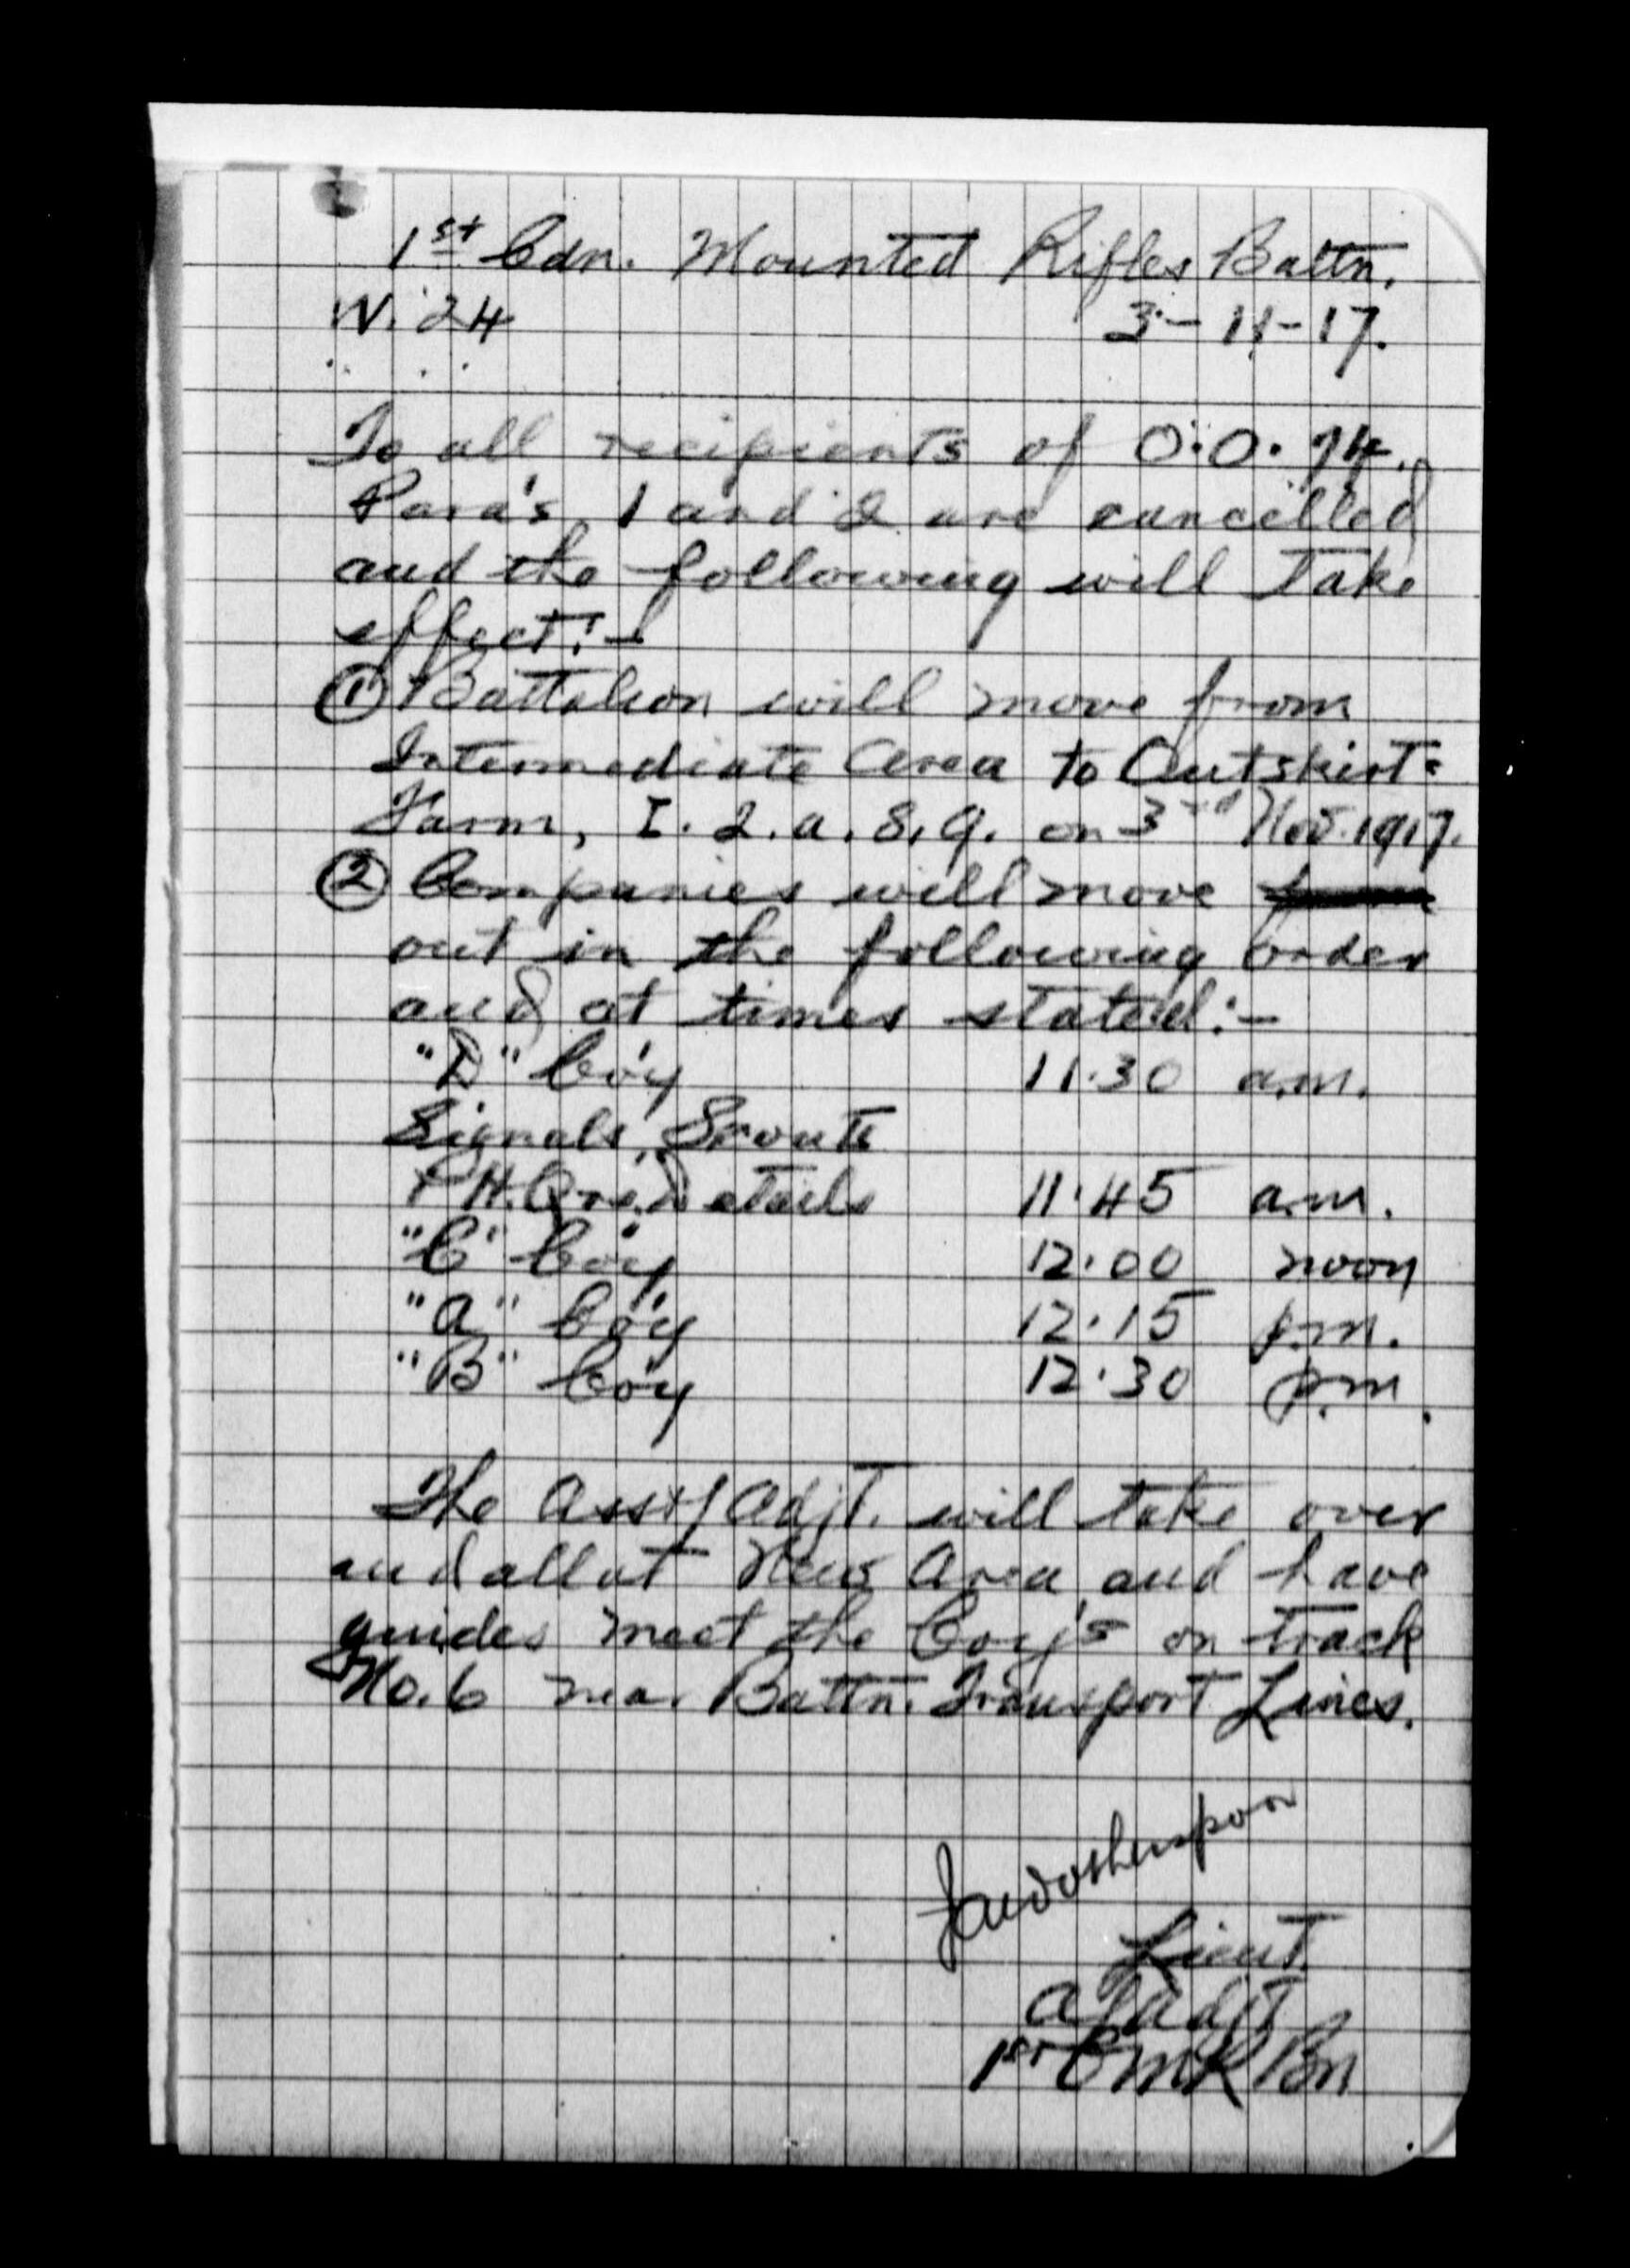 1st Cdn. Mounted Rifles Battn.
W. 24 3-11-17.
To all recipients of O.O. 74.
Para's 1 and 2 are cancelled
and the following will take
effect:-
① Battalion will move from
Intermediate Area to Outskirt
Farm, I.2.a.8.9. on 3rd Nov. 1917.
② Companies will move
out in the following order
and at times stated:-
"D" Co'y 11.30 a.m.
Signals, Scouts
+ H.Qrs. Details 11.45 a.m.
"C" Co'y 12.00 noon
"A" Co'y 12.15 p.m.
"B" Co'y 12.30 p.m.
The Asst/Adjt. will take over
and allot New Area and have
guides meet the Coy's on track
No. 6 near Battn. Transport Lines.
Jawotherspoon
Lieut.
A/Adjt
1st CMR Bn